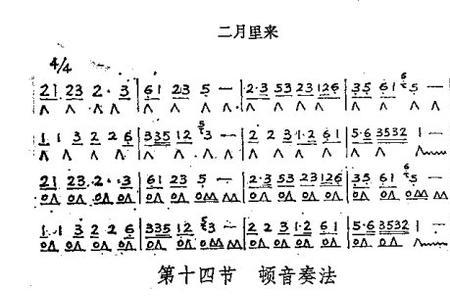 二月里来
4/4
21 23 2· 3 | 61 23 5 — | 2·3 53 23 126 | 35 61 5 — |
1 1 3 2 2 6 | 335 12 3 — | 2 2 3 1·2 61 | 5·6 3532 1 — |
21 23 2· 3 | 61 23 5 — | 2·3 53 23 126 | 35 61 5 — |
1 1 3 2 2 6 | 335 12 3 — | 2 2 3 1·2 61 | 5·6 3532 1 — |
第十四节 顿音奏法